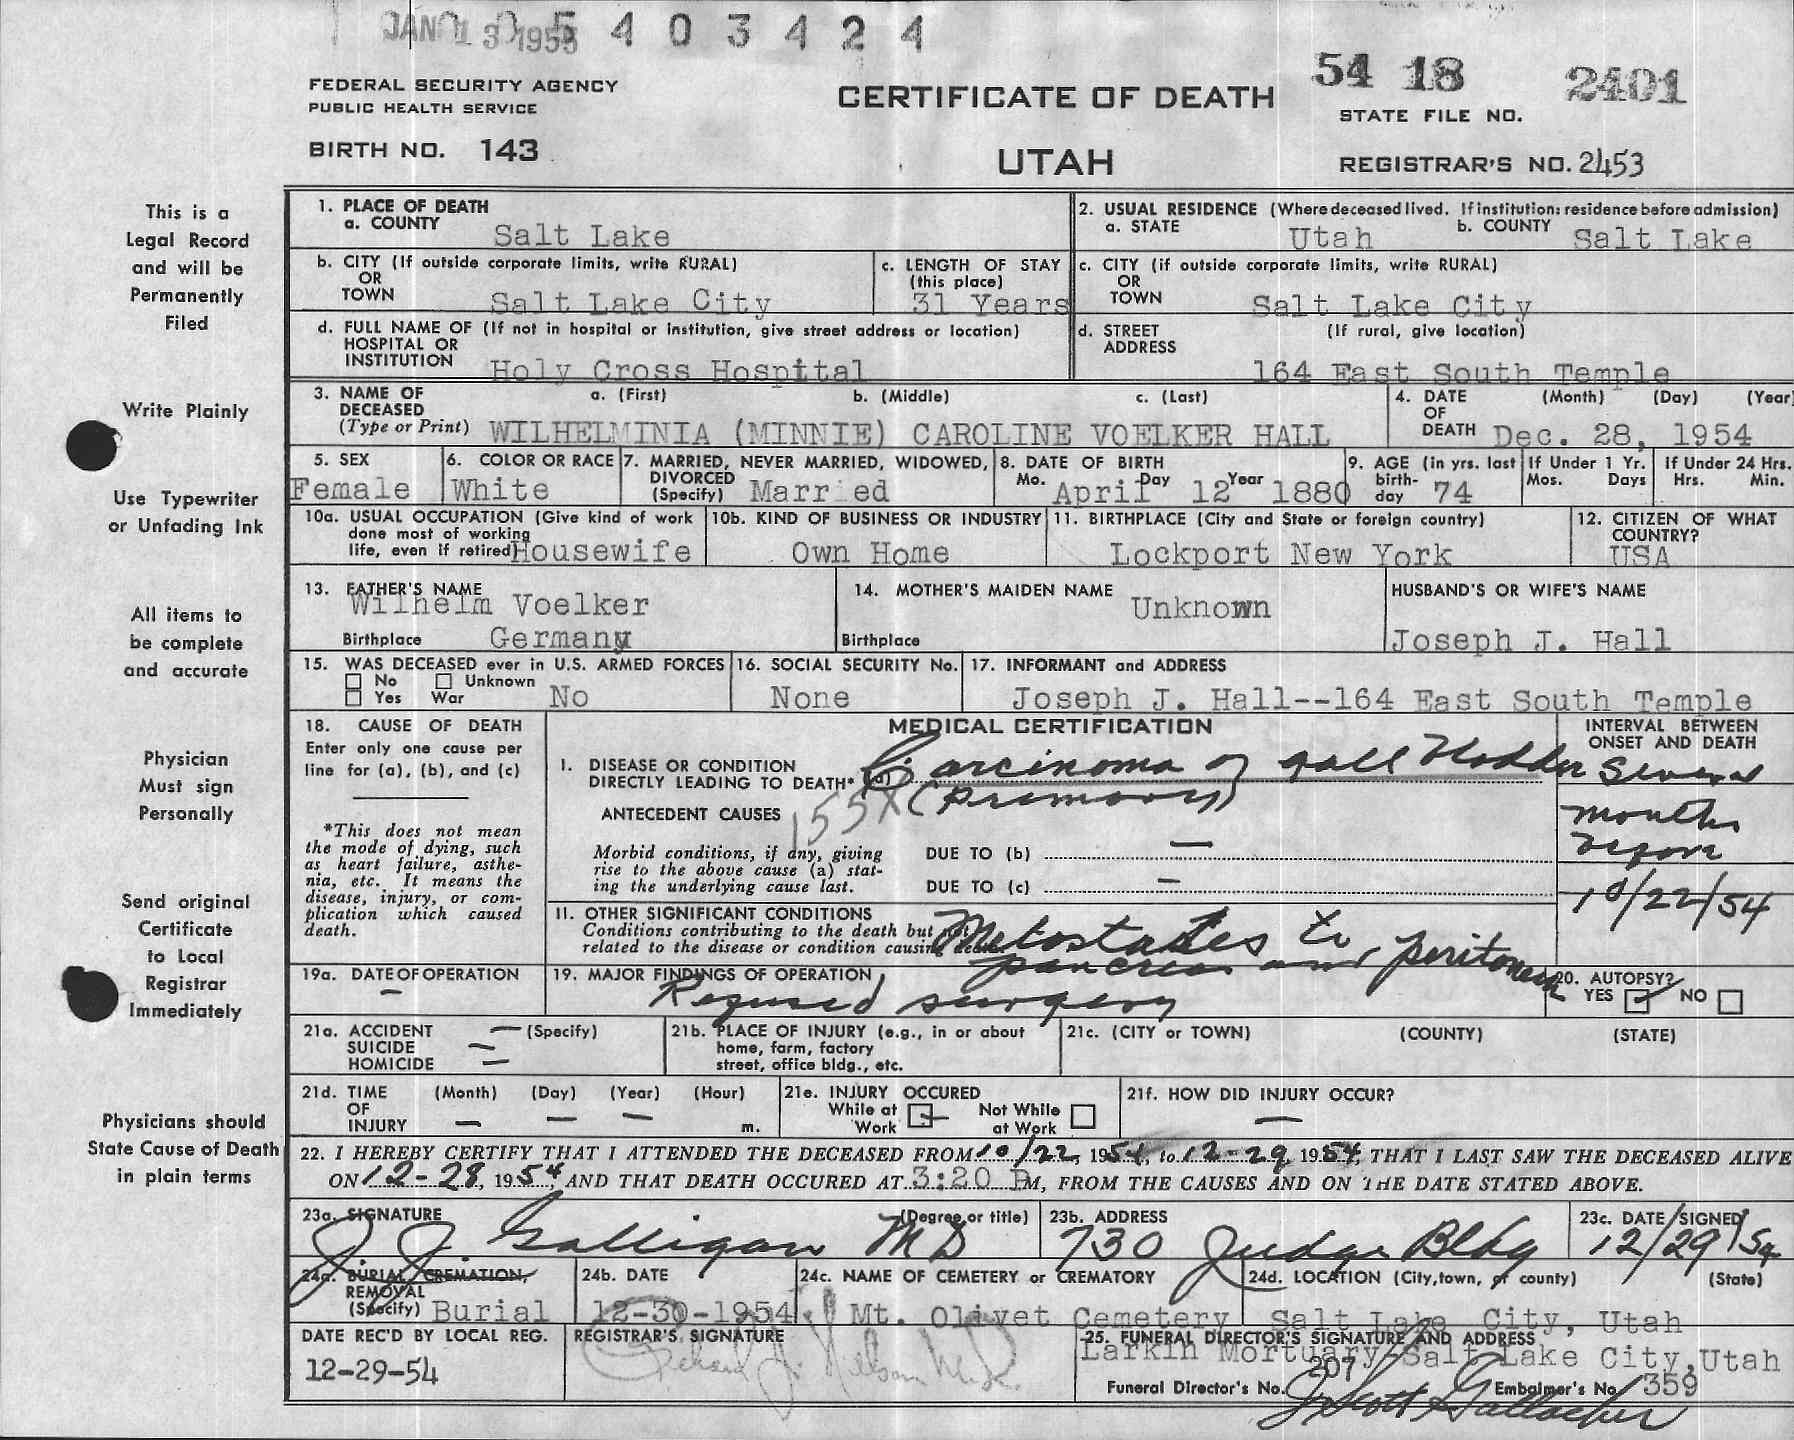 JAN 13 1955 5 4 0 3 4 2 4
FEDERAL SECURITY AGENCY
PUBLIC HEALTH SERVICE
BIRTH NO. 143
CERTIFICATE OF DEATH
UTAH
54 18 2401
STATE FILE NO.
REGISTRAR'S NO. 2453
This is a
Legal Record
and will be
Permanently
Filed
Write Plainly
Use Typewriter
or Unfading Ink
All items to
be complete
and accurate
Physician
Must sign
Personally
Send original
Certificate
to Local
Registrar
Immediately
Physicians should
State Cause of Death
in plain terms
1. PLACE OF DEATH
a. COUNTY Salt Lake
2. USUAL RESIDENCE (Where deceased lived. If institution: residence before admission)
a. STATE Utah b. COUNTY Salt Lake
b. CITY (If outside corporate limits, write RURAL)
OR
TOWN Salt Lake City
c. LENGTH OF STAY
(this place)
31 Years
c. CITY (if outside corporate limits, write RURAL)
OR
TOWN Salt Lake City
d. FULL NAME OF (If not in hospital or institution, give street address or location)
HOSPITAL OR
INSTITUTION Holy Cross Hospital
d. STREET (If rural, give location)
ADDRESS
164 East South Temple
3. NAME OF a. (First) b. (Middle) c. (Last)
DECEASED
(Type or Print) WILHELMINIA (MINNIE) CAROLINE VOELKER HALL
4. DATE (Month) (Day) (Year)
OF
DEATH Dec. 28, 1954
5. SEX
Female
6. COLOR OR RACE
White
7. MARRIED, NEVER MARRIED, WIDOWED,
DIVORCED
(Specify) Married
8. DATE OF BIRTH
Mo. April Day 12 Year 1880
9. AGE (in yrs. last
birth-
day 74
If Under 1 Yr.
Mos. Days
If Under 24 Hrs.
Hrs. Min.
10a. USUAL OCCUPATION (Give kind of work
done most of working
life, even if retired) Housewife
10b. KIND OF BUSINESS OR INDUSTRY
Own Home
11. BIRTHPLACE (City and State or foreign country)
Lockport New York
12. CITIZEN OF WHAT
COUNTRY?
USA
13. FATHER'S NAME
Wilhelm Voelker
Birthplace Germany
14. MOTHER'S MAIDEN NAME
Unknown
Birthplace
HUSBAND'S OR WIFE'S NAME
Joseph J. Hall
15. WAS DECEASED ever in U.S. ARMED FORCES
No Unknown
Yes War No
16. SOCIAL SECURITY No.
None
17. INFORMANT and ADDRESS
Joseph J. Hall--164 East South Temple
18. CAUSE OF DEATH
Enter only one cause per
line for (a), (b), and (c)
*This does not mean
the mode of dying, such
as heart failure, asthe-
nia, etc. It means the
disease, injury, or com-
plication which caused
death.
MEDICAL CERTIFICATION
INTERVAL BETWEEN
ONSET AND DEATH
I. DISEASE OR CONDITION
DIRECTLY LEADING TO DEATH* (a) Carcinoma of gall bladder
(Primary)
Several
months
before
10/22/54
ANTECEDENT CAUSES 155X
Morbid conditions, if any, giving
rise to the above cause (a) stat-
ing the underlying cause last.
DUE TO (b) —
DUE TO (c) —
11. OTHER SIGNIFICANT CONDITIONS
Conditions contributing to the death but not
related to the disease or condition causing death.
Metastates to
pancreas and peritoneum
19a. DATE OF OPERATION
—
19. MAJOR FINDINGS OF OPERATION
Refused surgery
20. AUTOPSY?
YES ✓ NO
21a. ACCIDENT — (Specify)
SUICIDE —
HOMICIDE —
21b. PLACE OF INJURY (e.g., in or about
home, farm, factory
street, office bldg., etc.
21c. (CITY or TOWN) (COUNTY) (STATE)
21d. TIME (Month) (Day) (Year) (Hour)
OF
INJURY — — — m.
21e. INJURY OCCURED
While at Not While
Work at Work
21f. HOW DID INJURY OCCUR?
—
22. I HEREBY CERTIFY THAT I ATTENDED THE DECEASED FROM 10/22, 1954, to 12-29, 1954, THAT I LAST SAW THE DECEASED ALIVE
ON 12-28, 1954, AND THAT DEATH OCCURED AT 3:20 P M, FROM THE CAUSES AND ON THE DATE STATED ABOVE.
23a. SIGNATURE (Degree or title)
J. J. Galligan MD
23b. ADDRESS
730 Judge Bldg
23c. DATE SIGNED
12/29/54
24a. BURIAL, CREMATION,
REMOVAL
(Specify) Burial
24b. DATE
12-30-1954
24c. NAME OF CEMETERY or CREMATORY
Mt. Olivet Cemetery
24d. LOCATION (City, town, or county) (State)
Salt Lake City, Utah
DATE REC'D BY LOCAL REG.
12-29-54
REGISTRAR'S SIGNATURE
25. FUNERAL DIRECTOR'S SIGNATURE AND ADDRESS
Larkin Mortuary Salt Lake City, Utah
Funeral Director's No. 207 Embalmer's No. 359
J Scott Gallacher